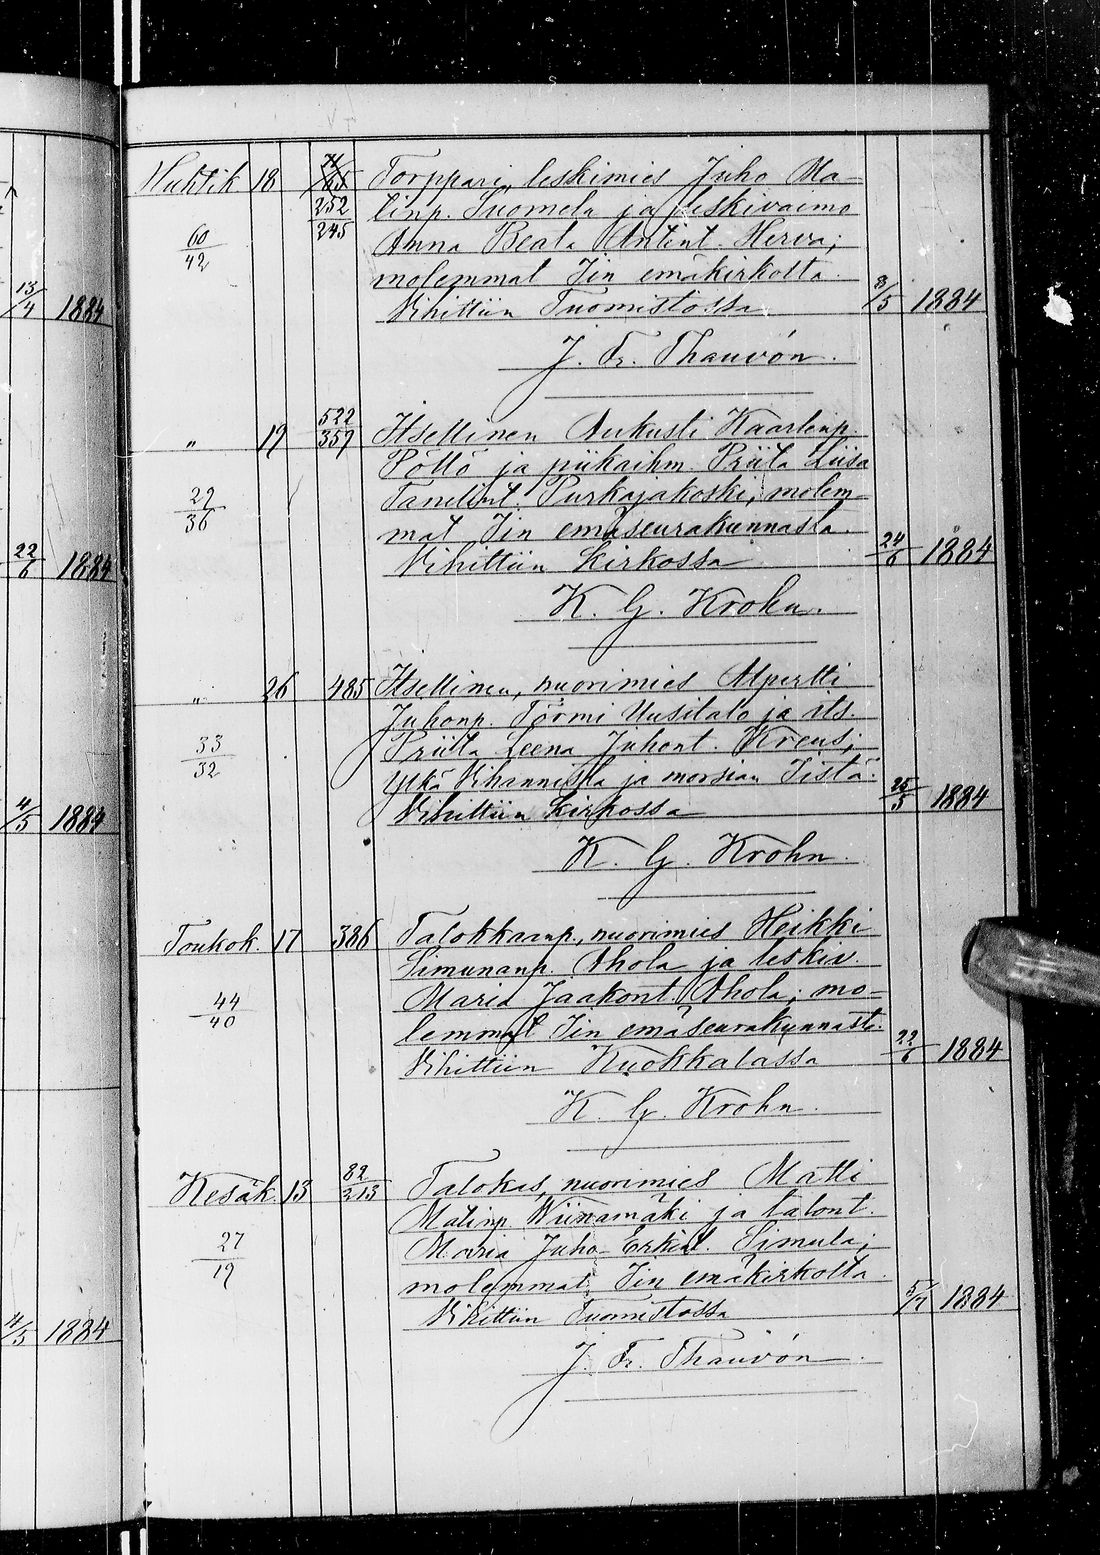 13/4 1884
22/6 1884
4/5 1884
4/5 1884
Huhtik 18 252/245 Torppari, leskimies Juho Ma-
tinp. Suomela ja leskivaimo
60/42 Anna Beata Antint. Herva;
molemmat Iin emäkirkolta.
Vihittiin Tuomistossa 8/5 1884
J. Fr. Thauvón.
" 19 522/357 Itsellinen Aukusti Kaarlenp.
Pöllö ja piikaihm. Priita Liisa
29/36 Tanelint. Purkajakoski; molem-
mat Iin emäseurakunnasta.
Vihittiin kirkossa 24/6 1884
K. G. Krohn.
" 26 485 Itsellinen, nuorimies Alpertti
Juhonp. Törmi Uusitalo ja its.
33/32 Priita Leena Juhont. Kreus;
ylkä Vihannista ja morsian Iistä.
Vihittiin kirkossa 25/5 1884
K. G. Krohn.
Toukok. 17 386 Talokkaanp., nuorimies Heikki
Simunanp. Ahola ja leskiv.
44/40 Maria Jaakont. Ahola; mo-
lemmat Iin emäseurakunnasta.
Vihittiin Kuokkalassa 22/6 1884
K. G. Krohn.
Kesäk. 13 82/213 Talokas, nuorimies Matti
Matinp. Wiinamäki ja talont.
27/19 Maria Juho Erkint. Simula;
molemmat Iin emäkirkolta.
Vihittiin Tuomistossa 5/7 1884
J. Fr. Thauvón.